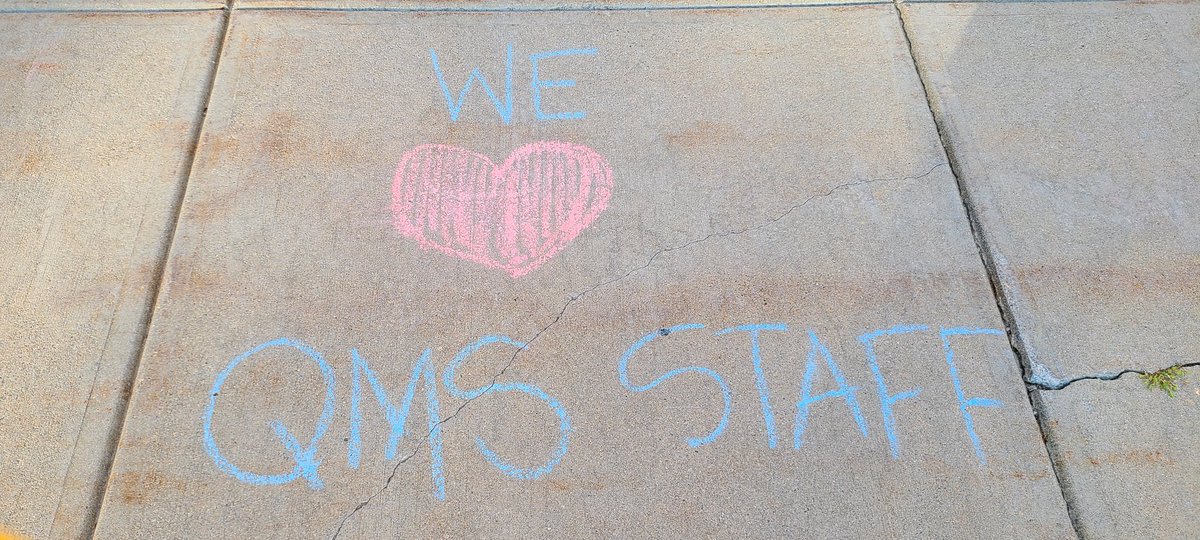 WE
QMS STAFF